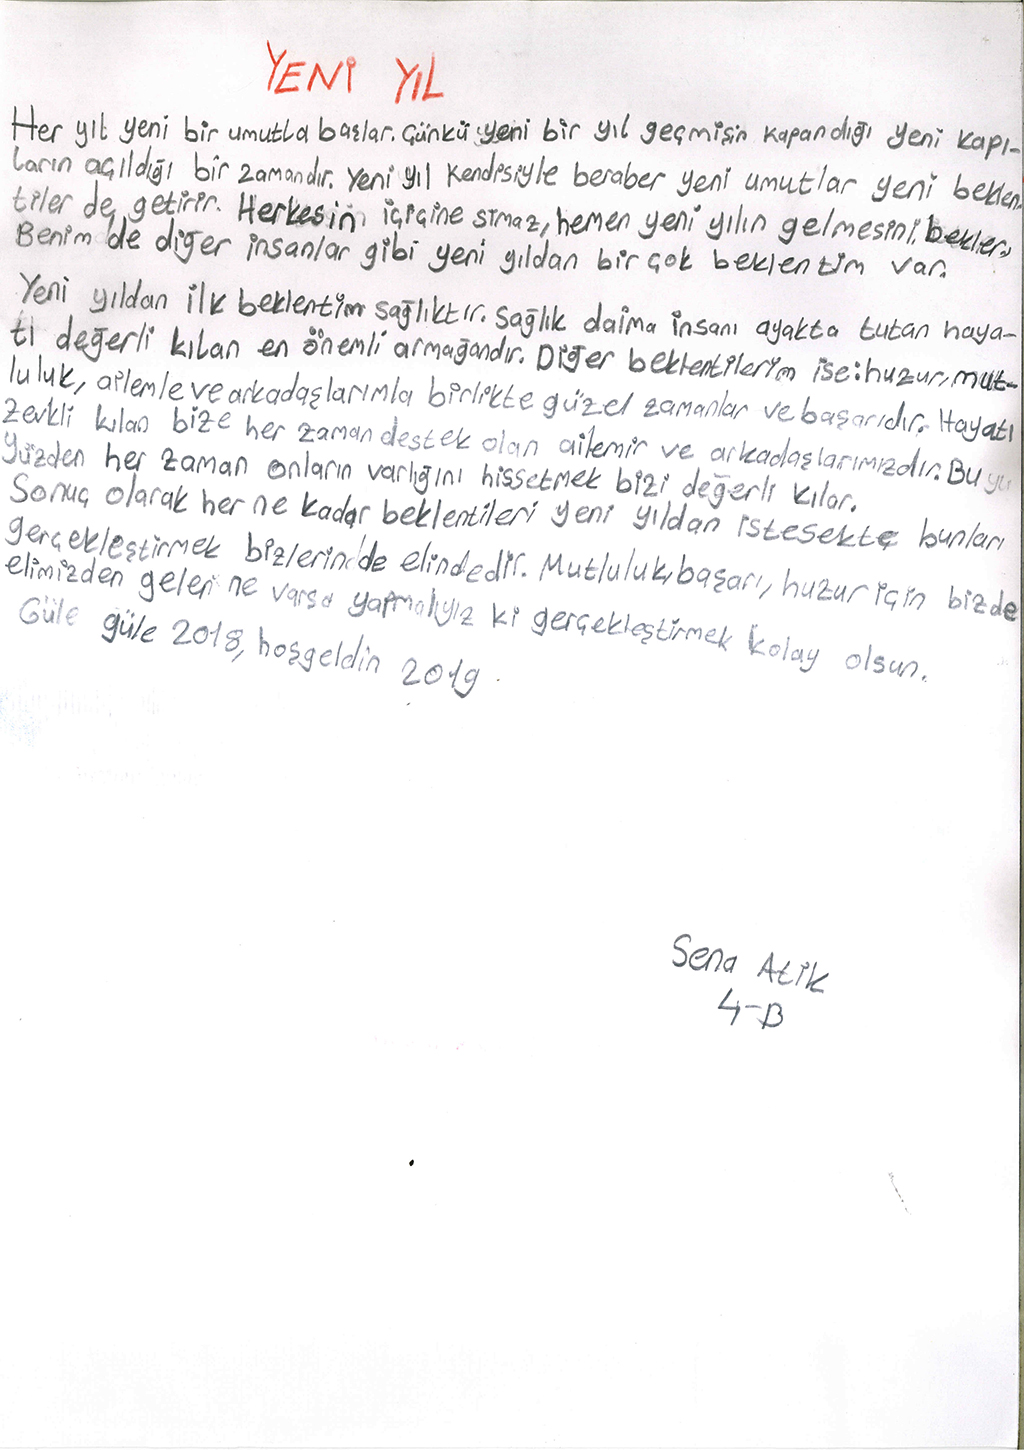 YENİ YIL
Her yıl yeni bir umutla başlar. Çünkü yeni bir yıl geçmişin kapandığı yeni kapı-
ların açıldığı bir zamandır. Yeni yıl kendisiyle beraber yeni umutlar yeni beklen-
tiler de getirir. Herkesin içiçine sımaz, hemen yeni yılın gelmesini bekler.
Benim de diğer insanlar gibi yeni yıldan bir çok beklentim var.
Yeni yıldan ilk beklentim sağlıktır. Sağlık daima insanı ayakta tutan haya-
tı değerli kılan en önemli armağandır. Diğer beklentilerim ise: huzur, mut-
luluk, ailemle ve arkadaşlarımla birlikte güzel zamanlar ve başarıdır. Hayatı
zevkli kılan bize her zaman destek olan ailemiz ve arkadaşlarımızdır. Bu yü
yüzden her zaman onların varlığını hissetmek bizi değerli kılar.
Sonuç olarak her ne kadar beklentileri yeni yıldan istesekte bunları
gerçekleştirmek bizlerin de elindedir. Mutluluk, başarı, huzur için bizde
elimizden gelen ne varsa yapmalıyız ki gerçekleştirmek kolay olsun.
Güle güle 2018, hoşgeldin 2019.
Sena Atik
4-B